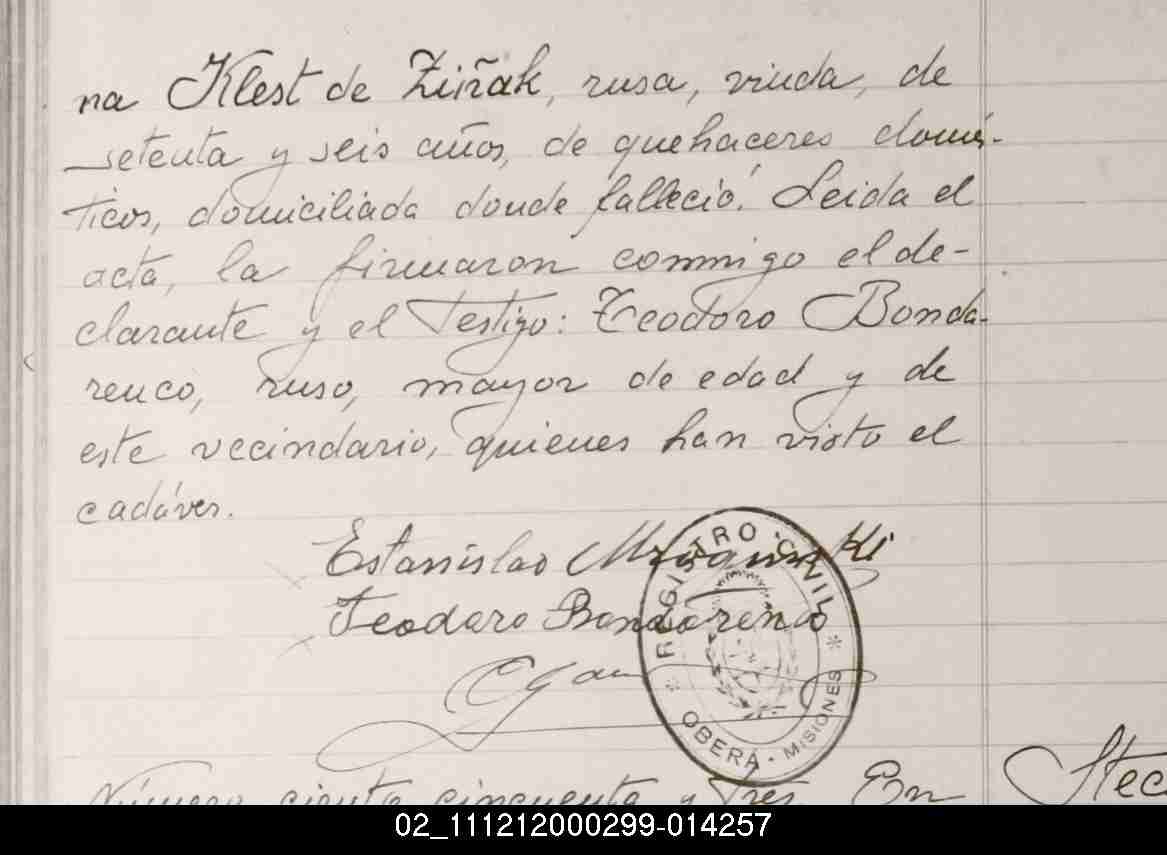 na Klest de Ziñak, rusa, viuda, de
setenta y seis años, de quehaceres domés-
ticos, domiciliada donde falleció. Leida el
acta, la firmaron conmigo el de-
clarante y el testigo: Teodoro Bonda-
renco, ruso, mayor de edad y de
este vecindario, quienes han visto el
cadáver.
Estanislao
Teodoro Bondarenco
REGISTRO CIVIL
* OBERÁ - MISIONES *
Número ciento cincuenta y tres En
02_111212000299-014257